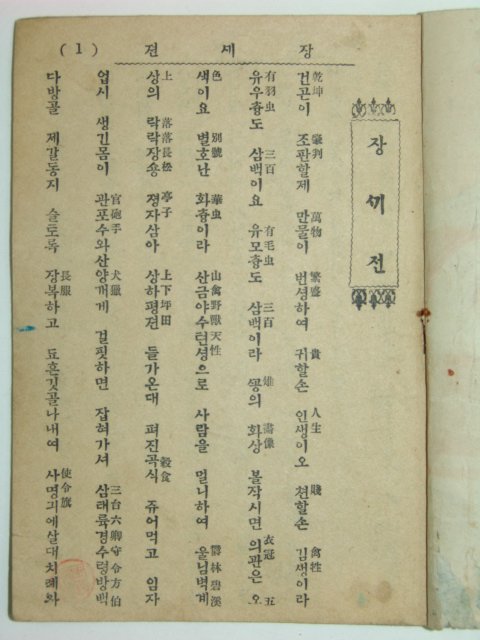 장끼전
(1) 장끼젼
건곤이 조판할제 만물이 번셩하여 귀할손 인생이오 쳔할손 김생이라
乾坤 肇判 萬物 繁盛 貴 人生 賤 禽牲
유우츙도 삼백이요 유모츙도 삼백이라 꿩의 화상 볼작시면 의관은 오
有羽虫 三百 有毛虫 三百 雄 畵像 衣冠 五
색이요 별호난 화츙이라 산금야수텬셩으로 사람을 멀니하여 울님벽계
色 別號 華虫 山禽野獸天性 鬱林碧溪
상의 락락장숑 졍자삼아 상하평젼 들가온대 펴진곡식 쥬어먹고 임자
上 落落長松 亭子 上下坪田 穀食
업시 생긴몸이 관포수와산양개게 걸핏하면 잡혀가셔 삼태륙경수령방백
官砲手 犬獵 三台六卿守令方伯
다방골 제갈동지 슬토록 장복하고 됴흔깃골나내여 사명긔에살대치례와
長服 使令旗